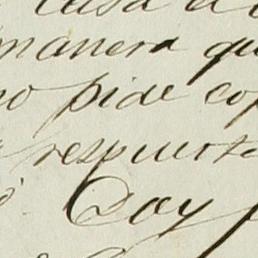 casa d
manera qu
no pide co
respuesta
Doy